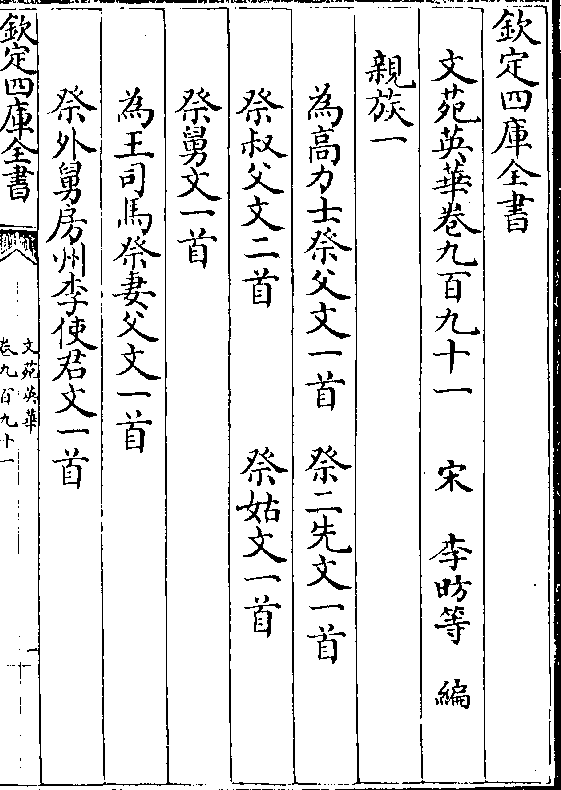 欽定四庫全書
文苑英華卷九百九十一 宋 李昉等 編
親族一
為高力士祭父文一首 祭二先文一首
祭叔父文二首 祭姑文一首
祭舅文一首
為王司馬祭妻父文一首
祭外舅房州李使君文一首
欽定四庫全書
文苑英華
卷九百九十一
一